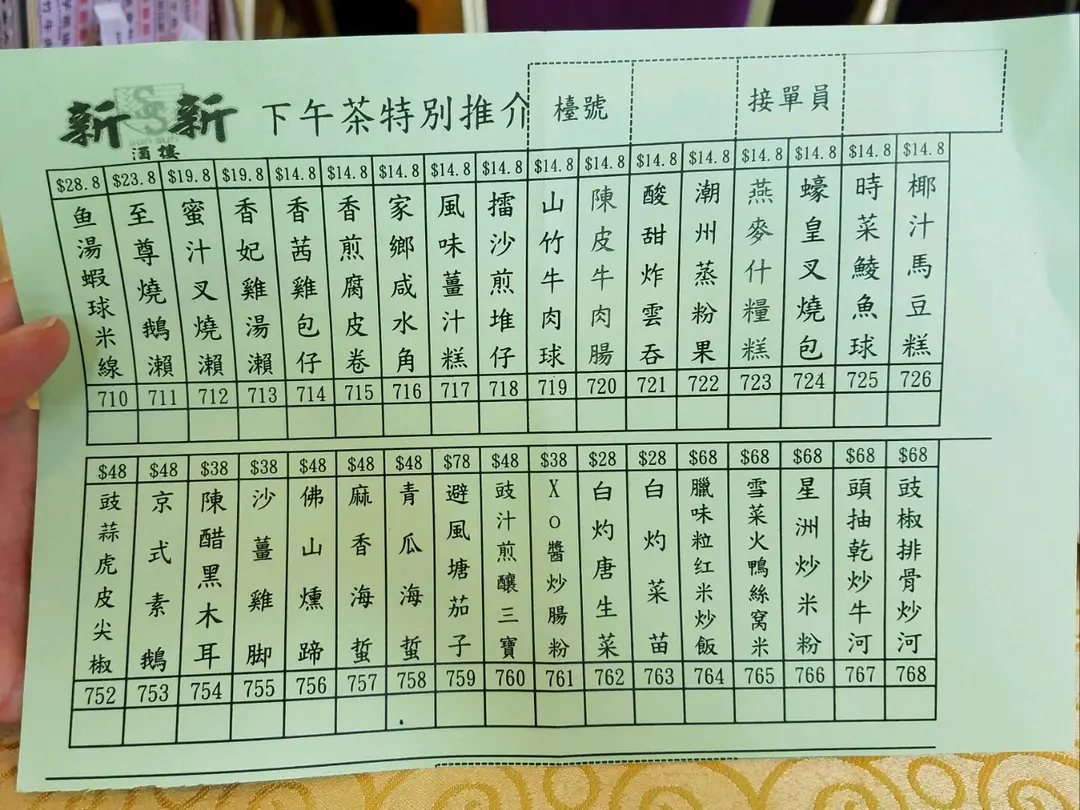 新新 下午茶特別推介 檯號 接單員
酒樓
$28.8 $23.8 $19.8 $19.8 $14.8 $14.8 $14.8 $14.8 $14.8 $14.8 $14.8 $14.8 $14.8 $14.8 $14.8 $14.8 $14.8
鱼湯蝦球米線
至尊燒鵝瀨
蜜汁叉燒瀨
香妃雞湯瀨
香茜雞包仔
香煎腐皮卷
家鄉咸水角
風味薑汁糕
擂沙煎堆仔
山竹牛肉球
陳皮牛肉腸
酸甜炸雲吞
潮州蒸粉果
燕麥什糧糕
蠔皇叉燒包
時菜鯪魚球
椰汁馬豆糕
710 711 712 713 714 715 716 717 718 719 720 721 722 723 724 725 726
$48 $48 $38 $38 $48 $48 $48 $78 $48 $38 $28 $28 $68 $68 $68 $68 $68
豉蒜虎皮尖椒
京式素鵝
陳醋黑木耳
沙薑雞脚
佛山燻蹄
麻香海蜇
青瓜海蜇
避風塘茄子
豉汁煎釀三寶
XO醬炒腸粉
白灼唐生菜
白灼菜苗
臘味粒红米炒飯
雪菜火鴨絲窝米
星洲炒米粉
頭抽乾炒牛河
豉椒排骨炒河
752 753 754 755 756 757 758 759 760 761 762 763 764 765 766 767 768